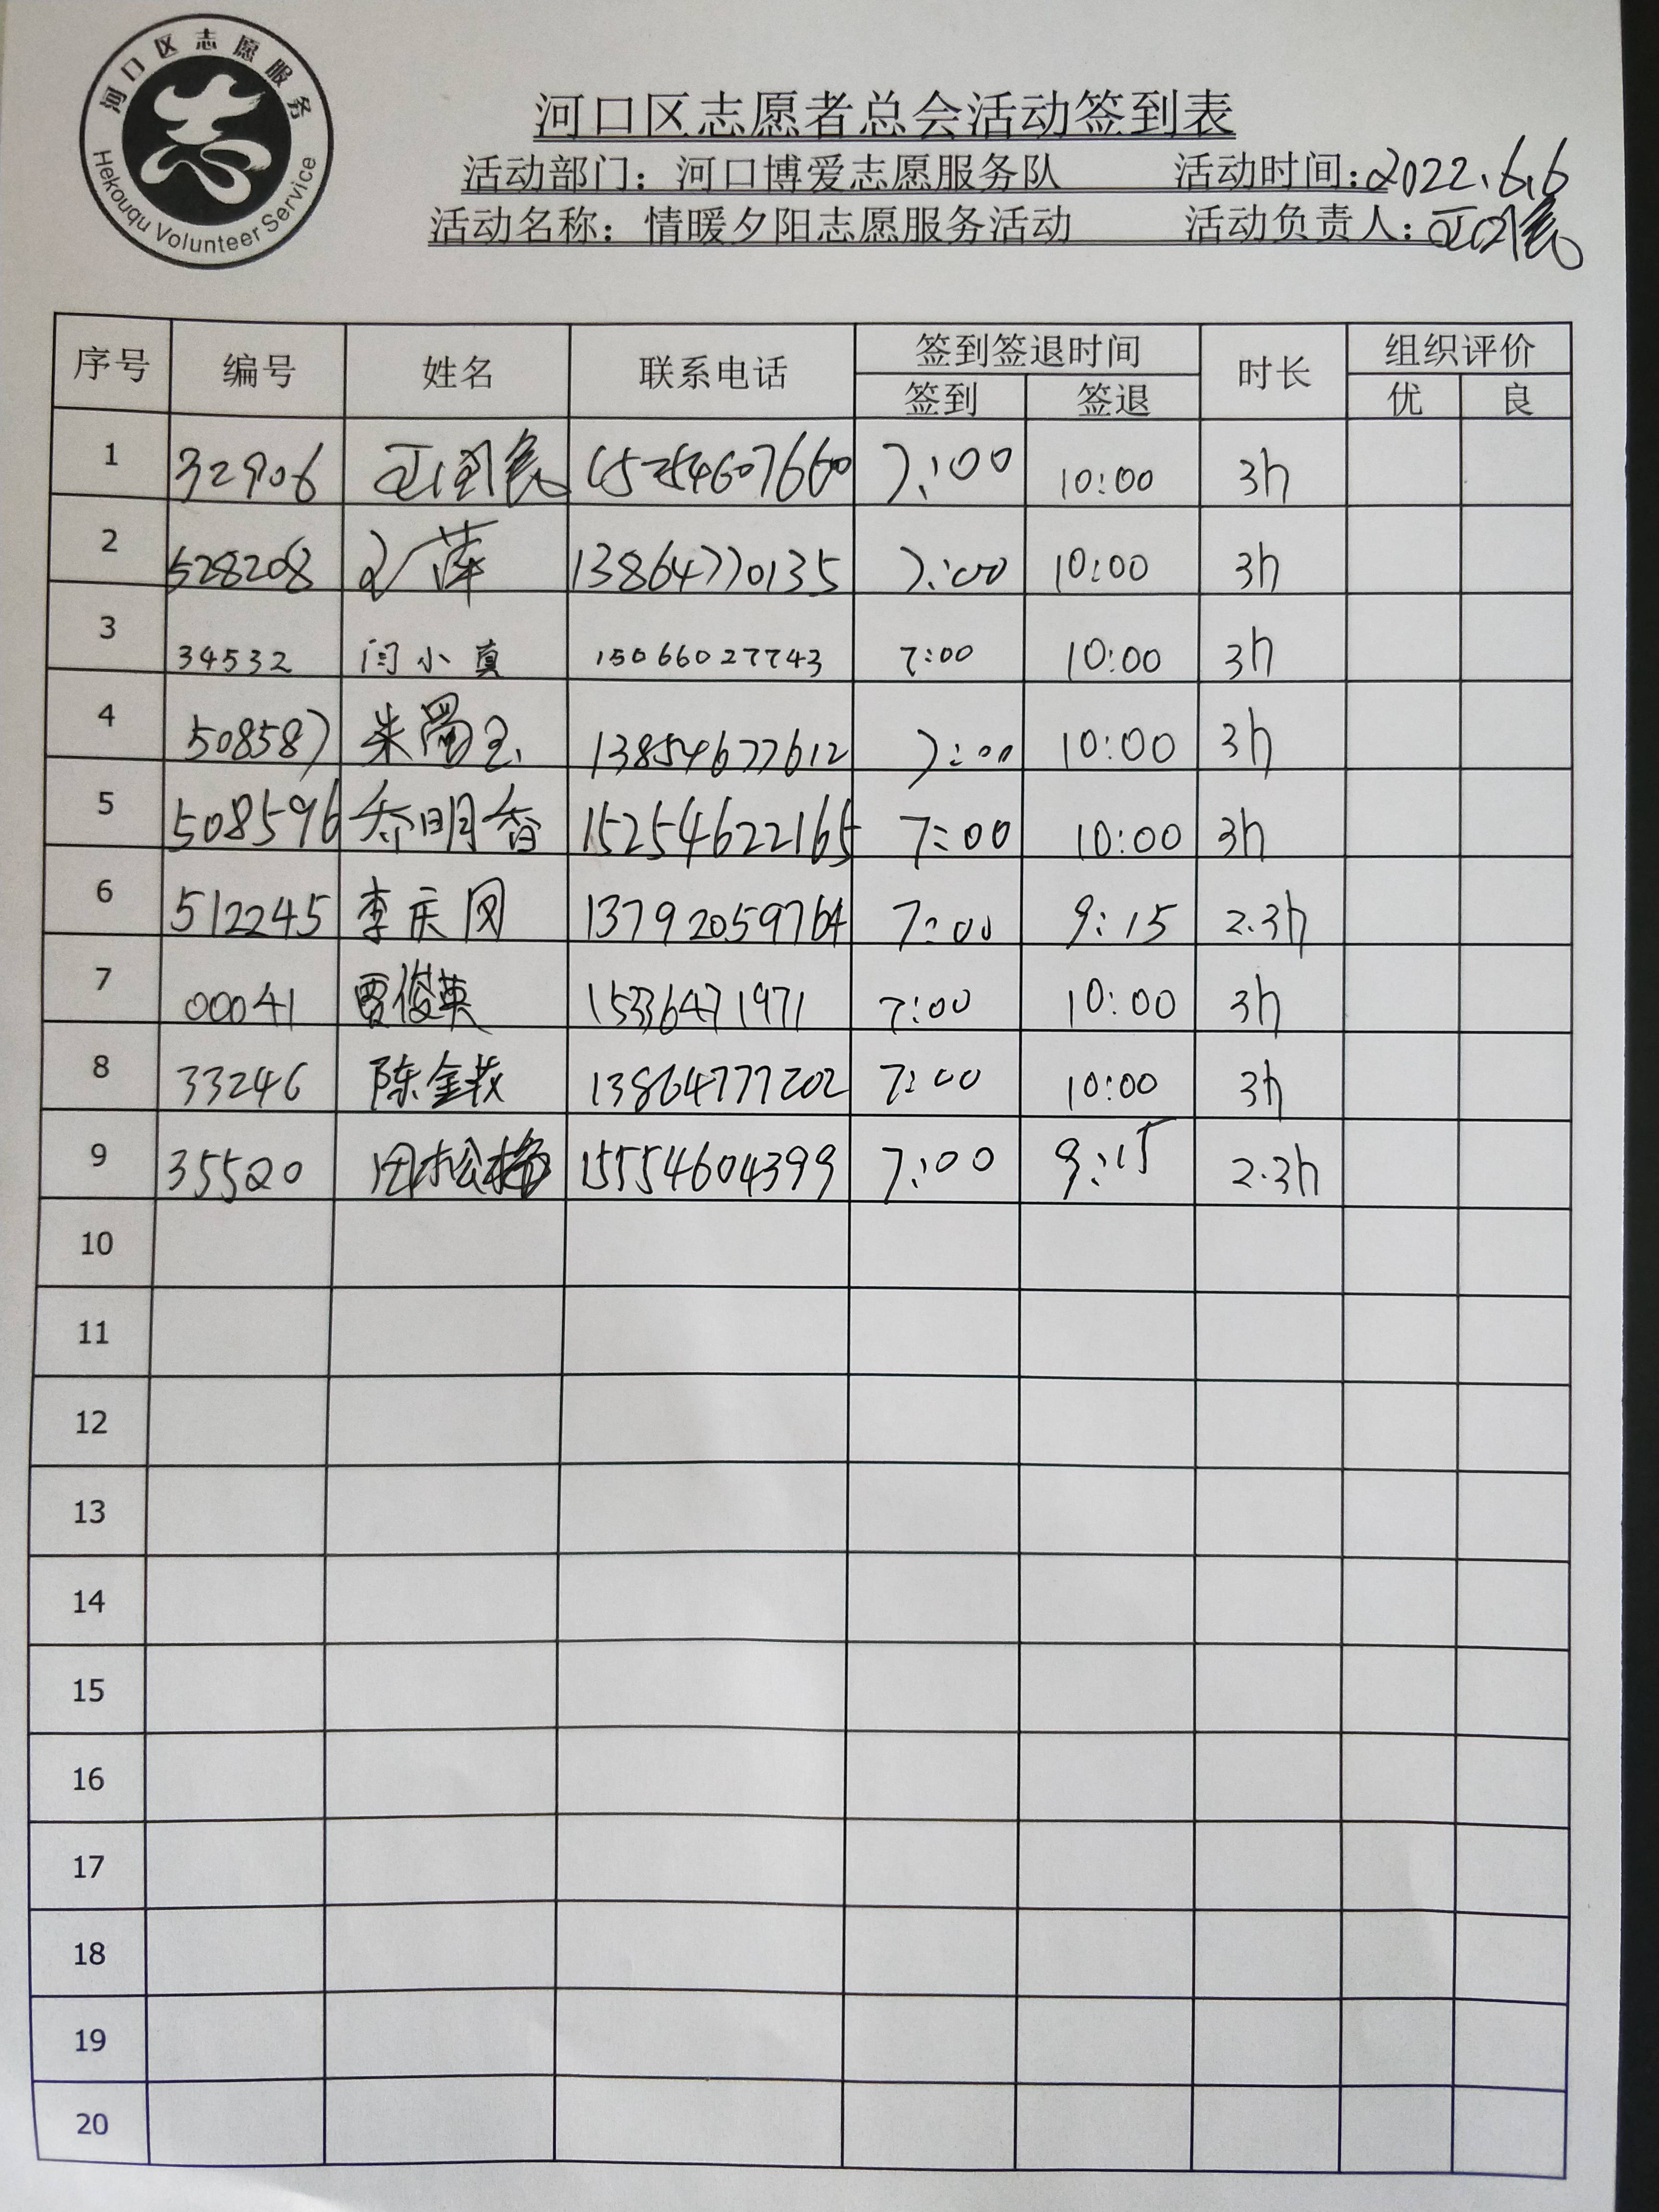 河口区志愿服务
Hekouqu Volunteer Service
河口区志愿者总会活动签到表
活动部门：河口博爱志愿服务队 活动时间：2022.6.6
活动名称：情暖夕阳志愿服务活动 活动负责人：
序号 编号 姓名 联系电话 签到签退时间 时长 组织评价
签到 签退 优 良
1 32906 15254607660 7:00 10:00 3h
2 528208 萍 13864770135 7:00 10:00 3h
3 34532 闫小真 15066027743 7:00 10:00 3h
4 508587 朱 13854677612 7:00 10:00 3h
5 508596 乔明香 15254622165 7:00 10:00 3h
6 512245 李庆 13792059764 7:00 9:15 2.3h
7 00041 贾俊英 15336471971 7:00 10:00 3h
8 33246 陈金 13864777202 7:00 10:00 3h
9 35520 田松梅 15554604399 7:00 9:15 2.3h
10
11
12
13
14
15
16
17
18
19
20